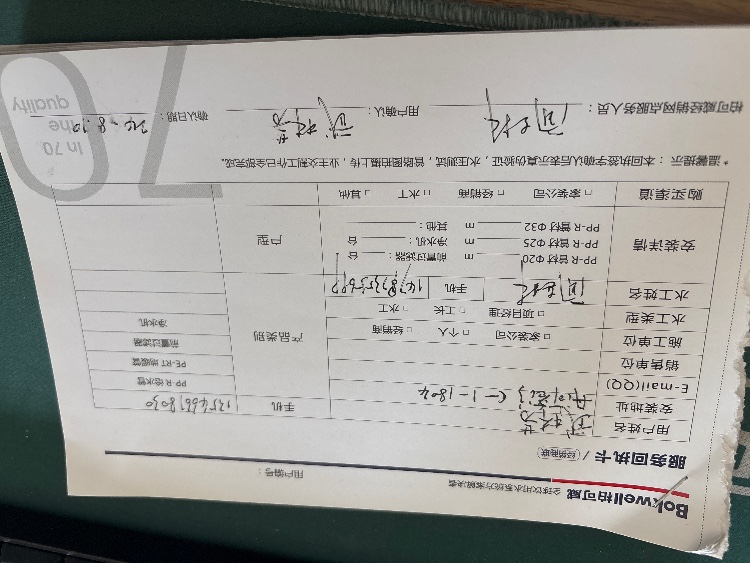 Bokwell柏可威 全球饮用水系统方案解决者
用户编号：
服务回执卡 / 经销商联
用户姓名 手机
安装地址 C-1-1804
E-mail(QQ) 产品类别 PP-R 给水管
销售单位 PE-RT 地暖管
施工单位 □ 家装公司 □ 个人 □ 经销商 前置过滤器
水工类型 □ 项目经理 □ 工长 □ 水工 净水机
水工姓名 手机
安装详情 户型
PP-R 管材 Φ20 m 前置过滤器： 台
PP-R 管材 Φ25 m 净水机： 台
PP-R 管材 Φ32 m 其他：
购买渠道 □ 家装公司 □ 经销商 □ 水工 □ 其他
* 温馨提示：本回执签字确认后表示真伪验证，水压测试，管路图拍摄上传，业主交到工作已全部完成。
柏可威经销网点服务人员： 用户确认： 确认日期：
70
In 70
the
quality